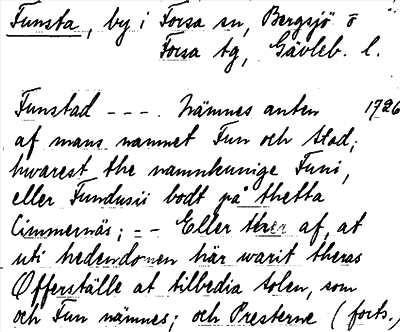 Funsta, by i Forsa sn, Bergsjö o
Forsa tg, Gävleb. l.
Funstad - - - . nämnes anten 1726
af mans namnet Fun och stad;
hwarest the namnkunige Funi,
eller Fundusii bodt på thetta
Cimmernäs; - - Eller af, at
uti hedendomen här warit theras
Offerställe at tilbedia solen, som
och Fun nämnes; och Presterne (forts.)